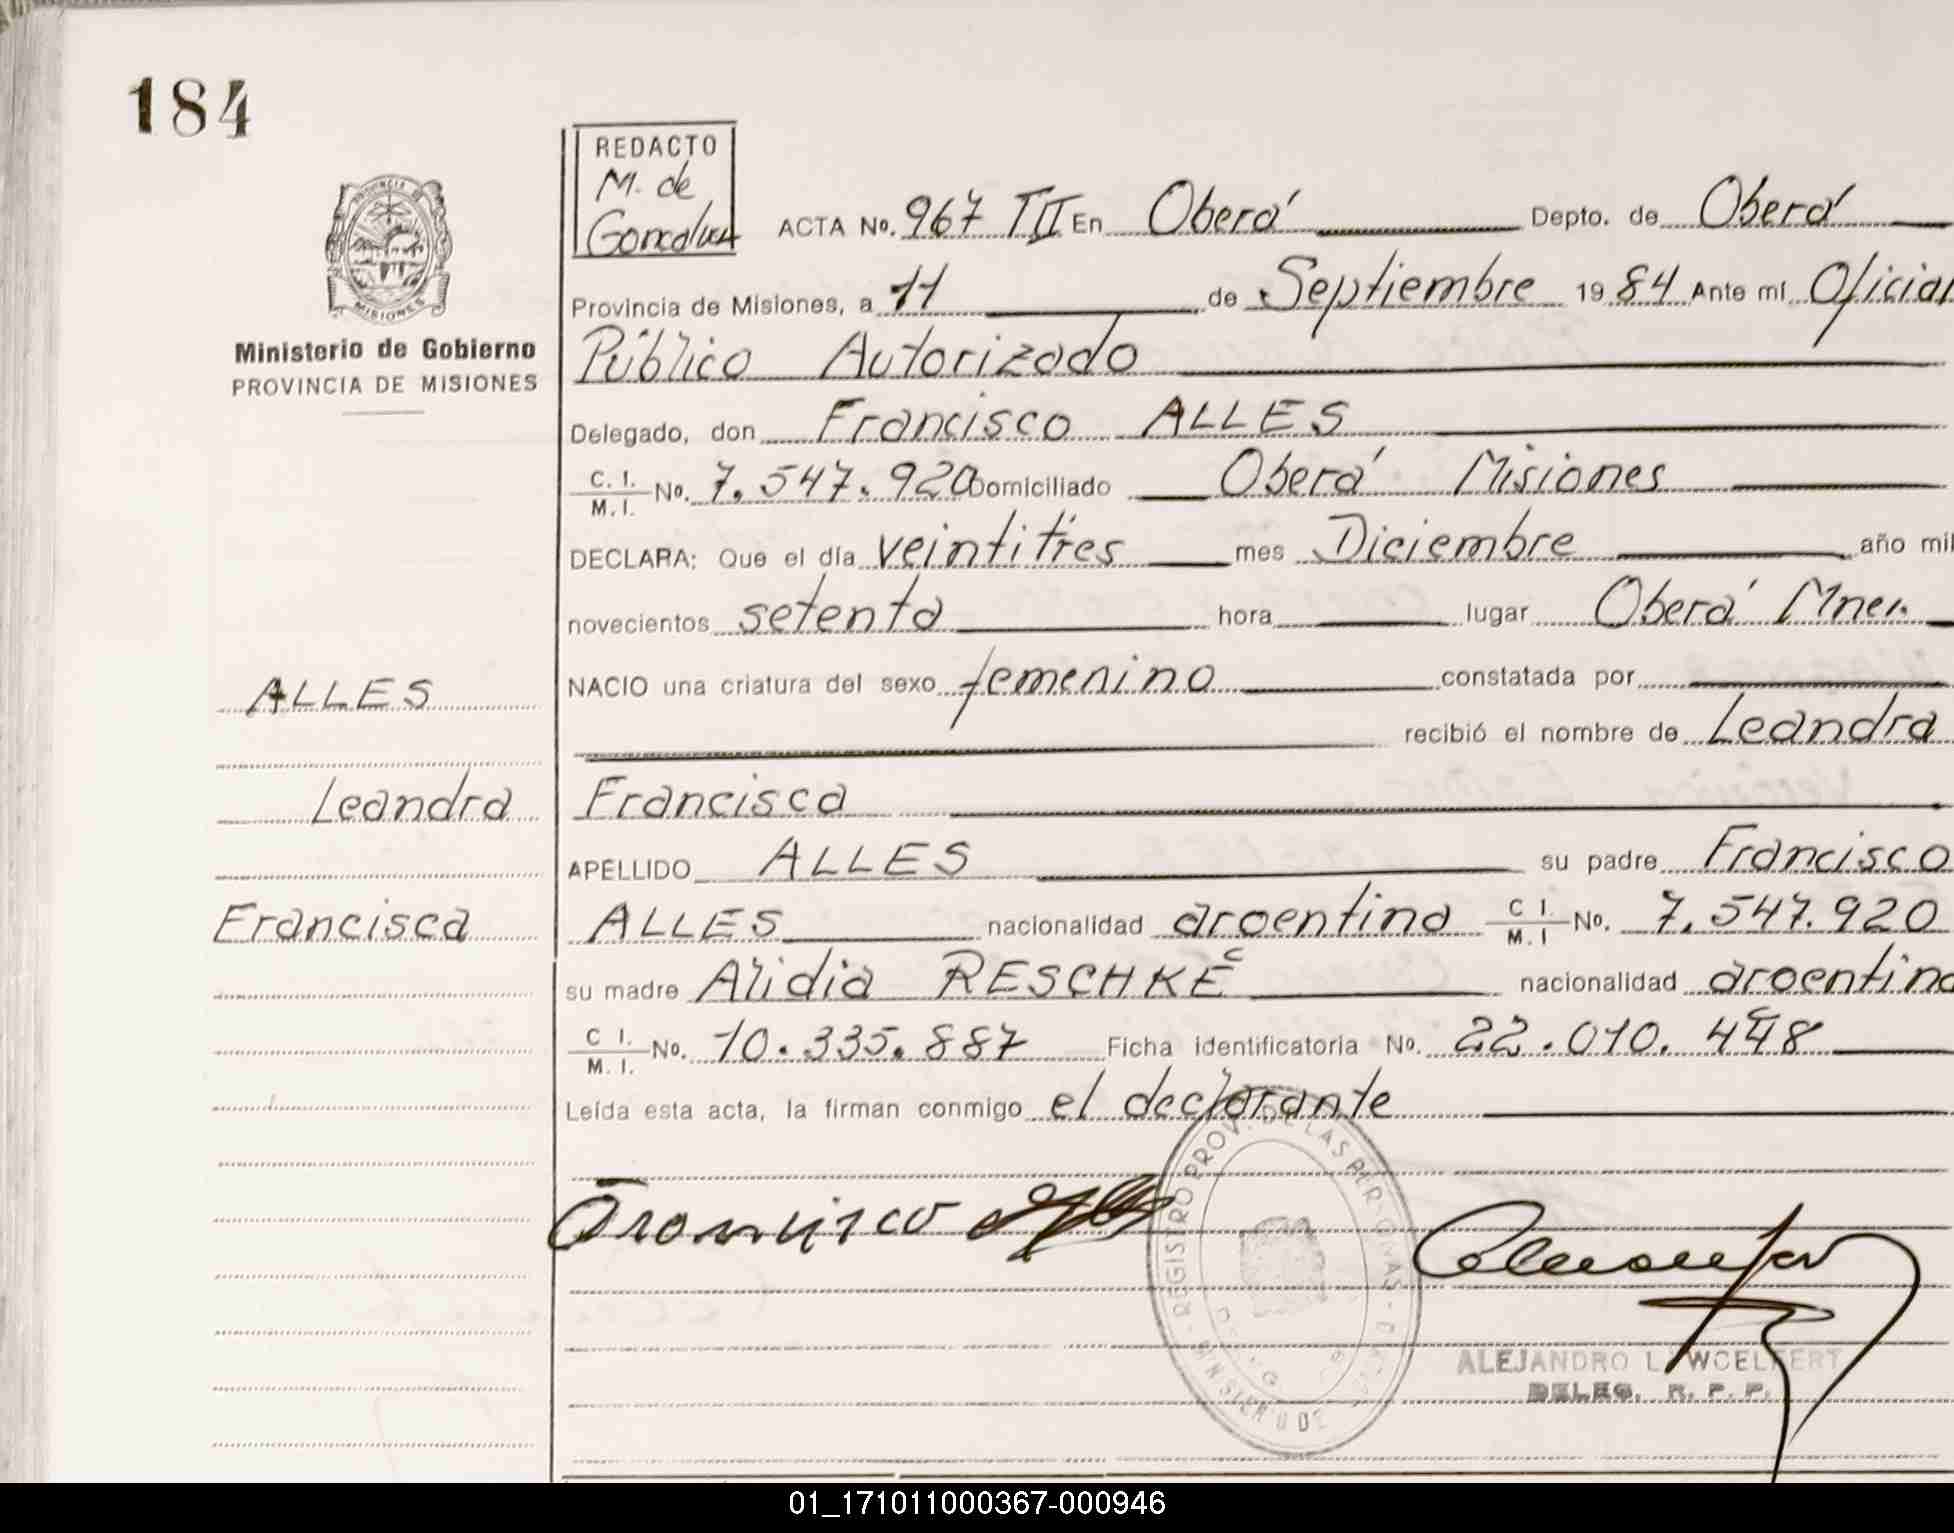 184
REDACTO
M. de
Goncalvez
ACTA No. 967 TII En Oberá Depto. de Oberá
Provincia de Misiones, a 11 de Septiembre 1984 Ante mí Oficial
Público Autorizado
Ministerio de Gobierno
PROVINCIA DE MISIONES
Delegado, don Francisco ALLES
C. I. M. I. No. 7.547.920 Domiciliado Oberá Misiones
DECLARA: Que el día veintitres mes Diciembre año mil
novecientos setenta hora lugar Oberá Mnes.
ALLES
NACIO una criatura del sexo femenino constatada por
recibió el nombre de Leandra
Leandra
Francisca
APELLIDO ALLES su padre Francisco
Francisca
ALLES nacionalidad argentina C I. M. I No. 7.547.920
su madre Alidia RESCHKE nacionalidad argentina
C I. M. I. No. 10.335.887 Ficha identificatoria No. 22.010.448
Leída esta acta, la firman conmigo el declarante
Francisco
REGISTRO PROV. DE LAS PERSONAS
ALEJANDRO L. WOELFERT
DELEG. R. P. P.
01_171011000367-000946